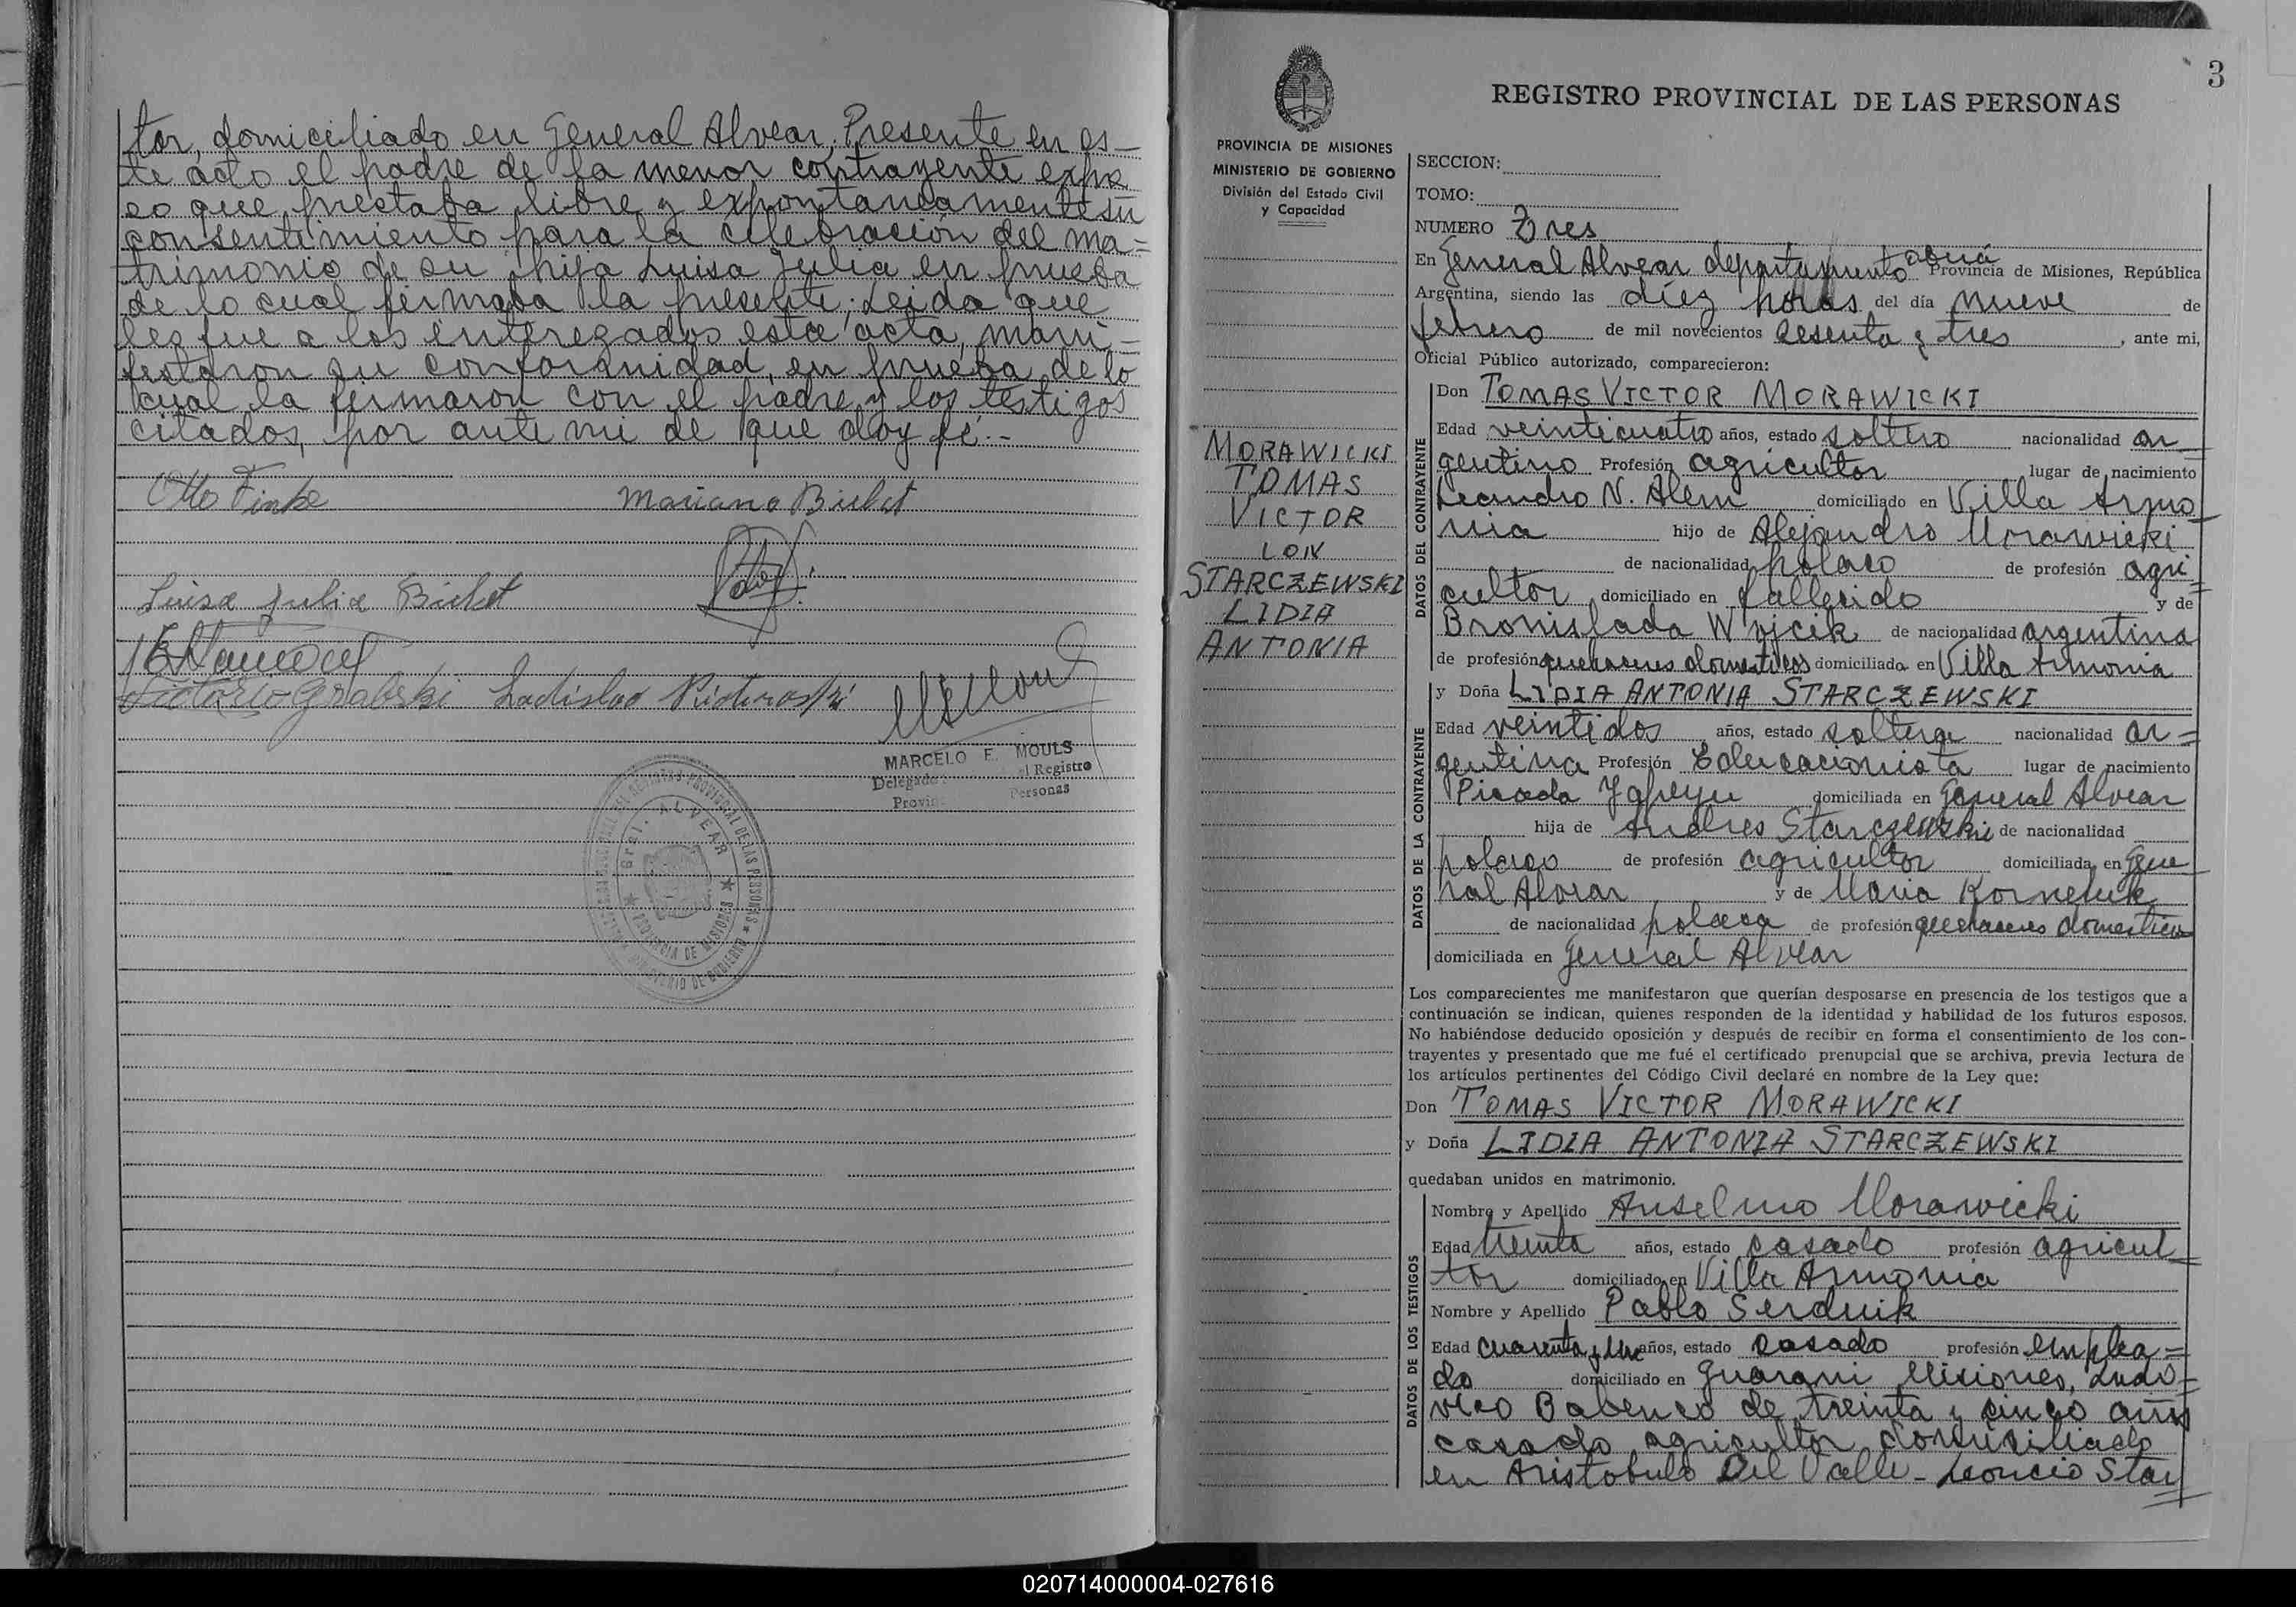 tor, domiciliado en General Alvear. Presente en es-
te acto el padre de la menor contrayente expre
so que prestaba libre y expontaneamente su
consentimiento para la celebración del ma=
trimonio de su hija Luisa Julia en prueba
de lo cual firmaba la presente; Leida que
les fue a los enteregados esta acta, mani=
festaron su conformidad, en prueba de lo
cual la firmaron con el padre y los testigos
citados, por ante mi de que doy fé.--
Otto Finke
Luisa Julia
Victorio Grabski Ladislao
MARCELO E. MOULS
Delegado el Registro
Provin Personas
Gral. ALVEAR
PROVINCIA DE MISIONES
3
REGISTRO PROVINCIAL DE LAS PERSONAS
PROVINCIA DE MISIONES
MINISTERIO DE GOBIERNO
División del Estado Civil
y Capacidad
MORAWICKI
TOMAS
VICTOR
CON
STARCZEWSKI
LIDIA
ANTONIA
SECCION:
TOMO:
NUMERO Tres
En General Alvear departamento obera Provincia de Misiones, República
Argentina, siendo las diez horas del día nueve de
febrero de mil novecientos sesenta y tres, ante mi,
Oficial Público autorizado, comparecieron:
DATOS DEL CONTRAYENTE
Don TOMAS VICTOR MORAWICKI
Edad veinticuatro años, estado soltero nacionalidad ar
gentino Profesión agricultor lugar de nacimiento
Leandro N. Alem domiciliado en Villa Armo
nia hijo de Alejandro Morawicki
de nacionalidad polaco de profesión agri
cultor domiciliado en fallecido y de
Bronislada Wojcik de nacionalidad argentina
de profesión quehaceres domesticos domiciliada en Villa Armonia
DATOS DE LA CONTRAYENTE
y Doña LIDIA ANTONIA STARCZEWSKI
Edad veintidos años, estado soltera nacionalidad ar=
gentina Profesión Educacionista lugar de nacimiento
Picada Yapeyu domiciliada en General Alvear
hija de Andres Starczewski de nacionalidad
polaco de profesión agricultor domiciliada en Gene
ral Alvear y de Maria Korneluk
de nacionalidad polaca de profesión quehaceres domesticos
domiciliada en General Alvear
Los comparecientes me manifestaron que querían desposarse en presencia de los testigos que a
continuación se indican, quienes responden de la identidad y habilidad de los futuros esposos.
No habiéndose deducido oposición y después de recibir en forma el consentimiento de los con-
trayentes y presentado que me fué el certificado prenupcial que se archiva, previa lectura de
los artículos pertinentes del Código Civil declaré en nombre de la Ley que:
Don TOMAS VICTOR MORAWICKI
y Doña LIDIA ANTONIA STARCZEWSKI
quedaban unidos en matrimonio.
DATOS DE LOS TESTIGOS
Nombre y Apellido Anselmo Morawicki
Edad treinta años, estado casado profesión agricul
tor domiciliado en Villa Armonia
Nombre y Apellido Pablo Serdiuk
Edad cuarenta y un años, estado casado profesión emplea=
do domiciliado en Guarani Misiones, Ludo=
vico Babenco de treinta y cinco años
casado agricultor domiciliado
en Aristobulo Del Valle - Leoncio Star
020714000004-027616